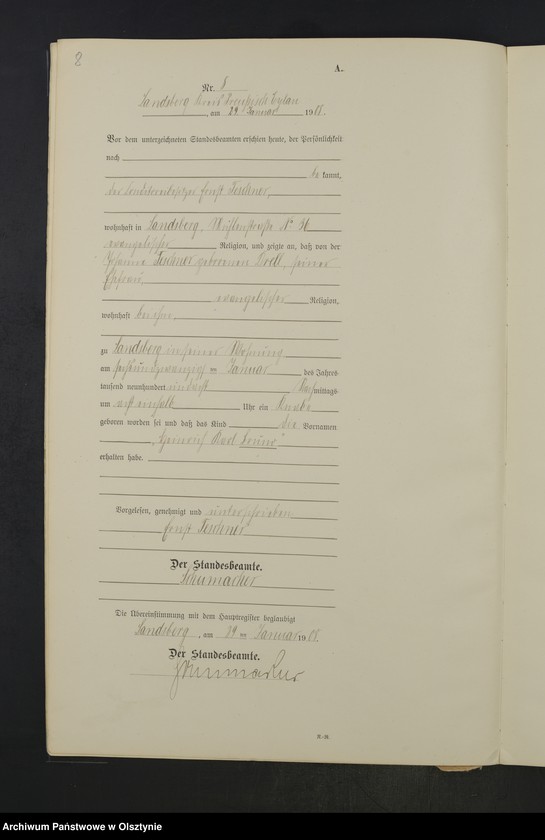 2
A.
Nr. 8
Landsberg Kreis Preußisch Eylau
, am 29 Januar 1908.
Vor dem unterzeichneten Standesbeamten erschien heute, der Persönlichkeit
nach
be kannt,
der Ernst
wohnhaft in Landsberg, Mühlenstraße No 36
evangelischer Religion, und zeigte an, daß von der
geborenen seiner
Ehefrau,
evangelischer Religion,
wohnhaft bei ihm,
zu Landsberg in seiner Wohnung
am sechsundzwanzigsten Januar des Jahres
tausend neunhundert und acht Nachmittags
um Uhr ein Knabe
geboren worden sei und daß das Kind die Vornamen
"Heinrich Karl Bruno"
erhalten habe.
Vorgelesen, genehmigt und unterschrieben
Ernst
Der Standesbeamte.
Schumacher
Die Übereinstimmung mit dem Hauptregister beglaubigt
Landsberg, am 29 ten Januar 1908.
Der Standesbeamte.
Schumacher
Archiwum Państwowe w Olsztynie